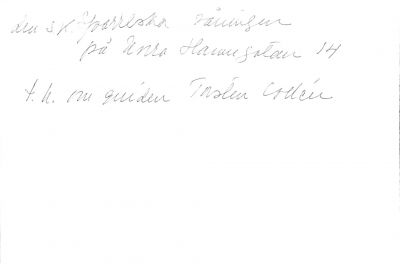 den s.k. Sparreska våningen
på Norra Hamngatan 14
t.h. om guiden Torsten Collén